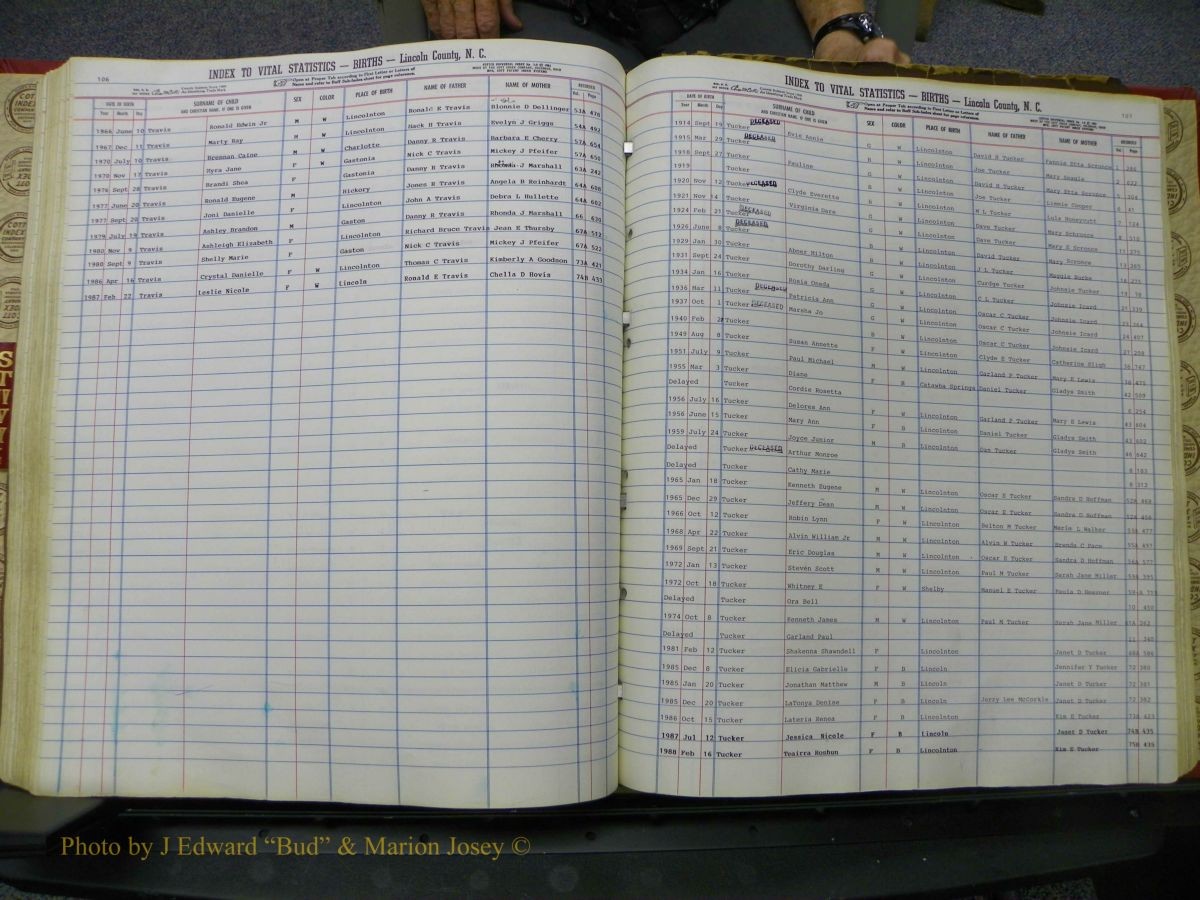 106
INDEX TO VITAL STATISTICS — BIRTHS — Lincoln County, N. C.
Open at Proper Tab according to First Letter or Letters of
Name and refer to Buff Sub-Index sheet for page reference.
DATE OF BIRTH
Year Month Day
SURNAME OF CHILD
AND CHRISTIAN NAME, IF ONE IS GIVEN
SEX
COLOR
PLACE OF BIRTH
NAME OF FATHER
NAME OF MOTHER
RECORDED
Vol. Page
1966 June 10 Travis Ronald Edwin Jr M W Lincolnton Ronald E Travis Blonnie D Dellinger 53A 476
1967 Dec 11 Travis Marty Ray M W Lincolnton Hack H Travis Evelyn J Griggs 54A 492
1970 July 10 Travis Brennan Caine M W Charlotte Danny R Travis Barbara E Cherry 57A 654
1970 Nov 17 Travis Myra Jane F W Gastonia Nick C Travis Mickey J Pfeifer 57A 650
1976 Sept 28 Travis Brandi Shea F Gastonia Danny R Travis Rhonda J Marshall 63A 242
1977 June 20 Travis Ronald Eugene M Hickory Jones R Travis Angela B Reinhardt 64A 608
1977 Sept 20 Travis Joni Danielle F Lincolnton John A Travis Debra L Hullette 64A 602
1979 July 19 Travis Ashley Brandon M Gaston Danny R Travis Rhonda J Marshall 66 430
1980 Nov 9 Travis Ashleigh Elizabeth F Lincolnton Richard Bruce Travis Jean E Thursby 67A 512
1980 Sept 9 Travis Shelly Marie F Gaston Nick C Travis Mickey J Pfeifer 67A 522
1986 Apr 16 Travis Crystal Danielle F W Lincolnton Thomas C Travis Kimberly A Goodson 73A 421
1987 Feb 22 Travis Leslie Nicole F W Lincoln Ronald E Travis Chella D Hovis 74B 433
INDEX TO VITAL STATISTICS — BIRTHS — Lincoln County, N. C.
107
Open at Proper Tab according to First Letter or Letters of
Name and refer to Buff Sub-Index sheet for page reference.
DATE OF BIRTH
Year Month Day
SURNAME OF CHILD
AND CHRISTIAN NAME, IF ONE IS GIVEN
SEX
COLOR
PLACE OF BIRTH
NAME OF FATHER
NAME OF MOTHER
RECORDED
Vol. Page
1914 Sept 19 Tucker DECEASED Evis Annie G W Lincolnton David H Tucker Fannie Etta Scronce
1915 Mar 29 Tucker DECEASED W Lincolnton Joe Tucker Mary Seagle
1918 Sept 27 Tucker Pauline G W Lincolnton David H Tucker Mary Etta Scronce
1919 Tucker W Lincolnton Joe Tucker Linnie Cooper
1920 Nov 12 Tucker DECEASED Clyde Everette B W Lincolnton M L Tucker Lula Honeycutt
1921 Nov 14 Tucker Virginia Dare G W Lincolnton Dave Tucker Mary Schronce
1924 Feb 21 Tucker DECEASED W Lincolnton Dave Tucker Mary E Scronce
1926 June 8 Tucker DECEASED W Lincolnton David Tucker Mary Scronce
1929 Jan 30 Tucker Abner Milton B W Lincolnton J L Tucker Maggie Burke
1931 Sept 24 Tucker Dorothy Darling G W Lincolnton Curdge Tucker Johnnie Tucker
1934 Jan 16 Tucker Rosia Oneda G W Lincolnton C L Tucker Johnsie Icard
1936 Mar 11 Tucker DECEASED Patricia Ann G W Lincolnton Oscar C Tucker Johnsie Icard
1937 Oct 1 Tucker DECEASED Marsha Jo G W Lincolnton Oscar C Tucker Johnsie Icard
1940 Feb Tucker W Lincolnton Oscar C Tucker Catherine Sligh
1949 Aug 8 Tucker Susan Annette F W Lincolnton Clyde E Tucker Mary E Lewis
1951 July 9 Tucker Paul Michael M W Lincolnton Garland P Tucker Gladys Smith
1955 Mar 3 Tucker Diane F B Catawba Springs Daniel Tucker
Delayed Tucker Cordie Rosetta
1956 July 16 Tucker Delores Ann F W Lincolnton Garland P Tucker Mary E Lewis
1956 June 15 Tucker Mary Ann F B Lincolnton Daniel Tucker Gladys Smith
1959 July 24 Tucker Joyce Junior M B Lincolnton Dan Tucker Gladys Smith
Delayed Tucker DECEASED Arthur Monroe
Delayed Tucker Cathy Marie
1965 Jan 18 Tucker Kenneth Eugene M W Lincolnton Oscar E Tucker Sandra D Hoffman
1965 Dec 29 Tucker Jeffery Dean M W Lincolnton Oscar E Tucker Sandra D Hoffman
1966 Oct 12 Tucker Robin Lynn F W Lincolnton Belton M Tucker Marie L Walker
1968 Apr 22 Tucker Alvin William Jr M W Lincolnton Alvin W Tucker Brenda C Pace
1969 Sept 21 Tucker Eric Douglas M W Lincolnton Oscar E Tucker Sandra D Hoffman
1972 Jan 13 Tucker Steven Scott M W Lincolnton Paul M Tucker Sarah Jane Miller
1972 Oct 18 Tucker Whitney E F W Shelby Manuel E Tucker
Delayed Tucker Ora Bell 10 450
1974 Oct 8 Tucker Kenneth James M W Lincolnton Paul M Tucker Sarah Jane Miller
Delayed Tucker Garland Paul 11 340
1981 Feb 12 Tucker Shakenna Shawndell F Lincolnton Janet D Tucker
1985 Dec 8 Tucker Elicia Gabrielle F B Lincoln Jennifer Y Tucker 72 380
1985 Jan 20 Tucker Jonathan Matthew M B Lincoln Janet D Tucker 72 381
1985 Dec 20 Tucker LaTonya Denise F B Lincoln Jerry Lee McCorkle Janet D Tucker 72 382
1986 Oct 15 Tucker Lateria Renea F B Lincolnton Kim E Tucker 73A 423
1987 Jul 12 Tucker Jessica Nicole F B Lincoln Janet D Tucker 74B 435
1988 Feb 16 Tucker Teairra Roshun F B Lincolnton Kim E Tucker 75B 439
Photo by J Edward “Bud” & Marion Josey ©